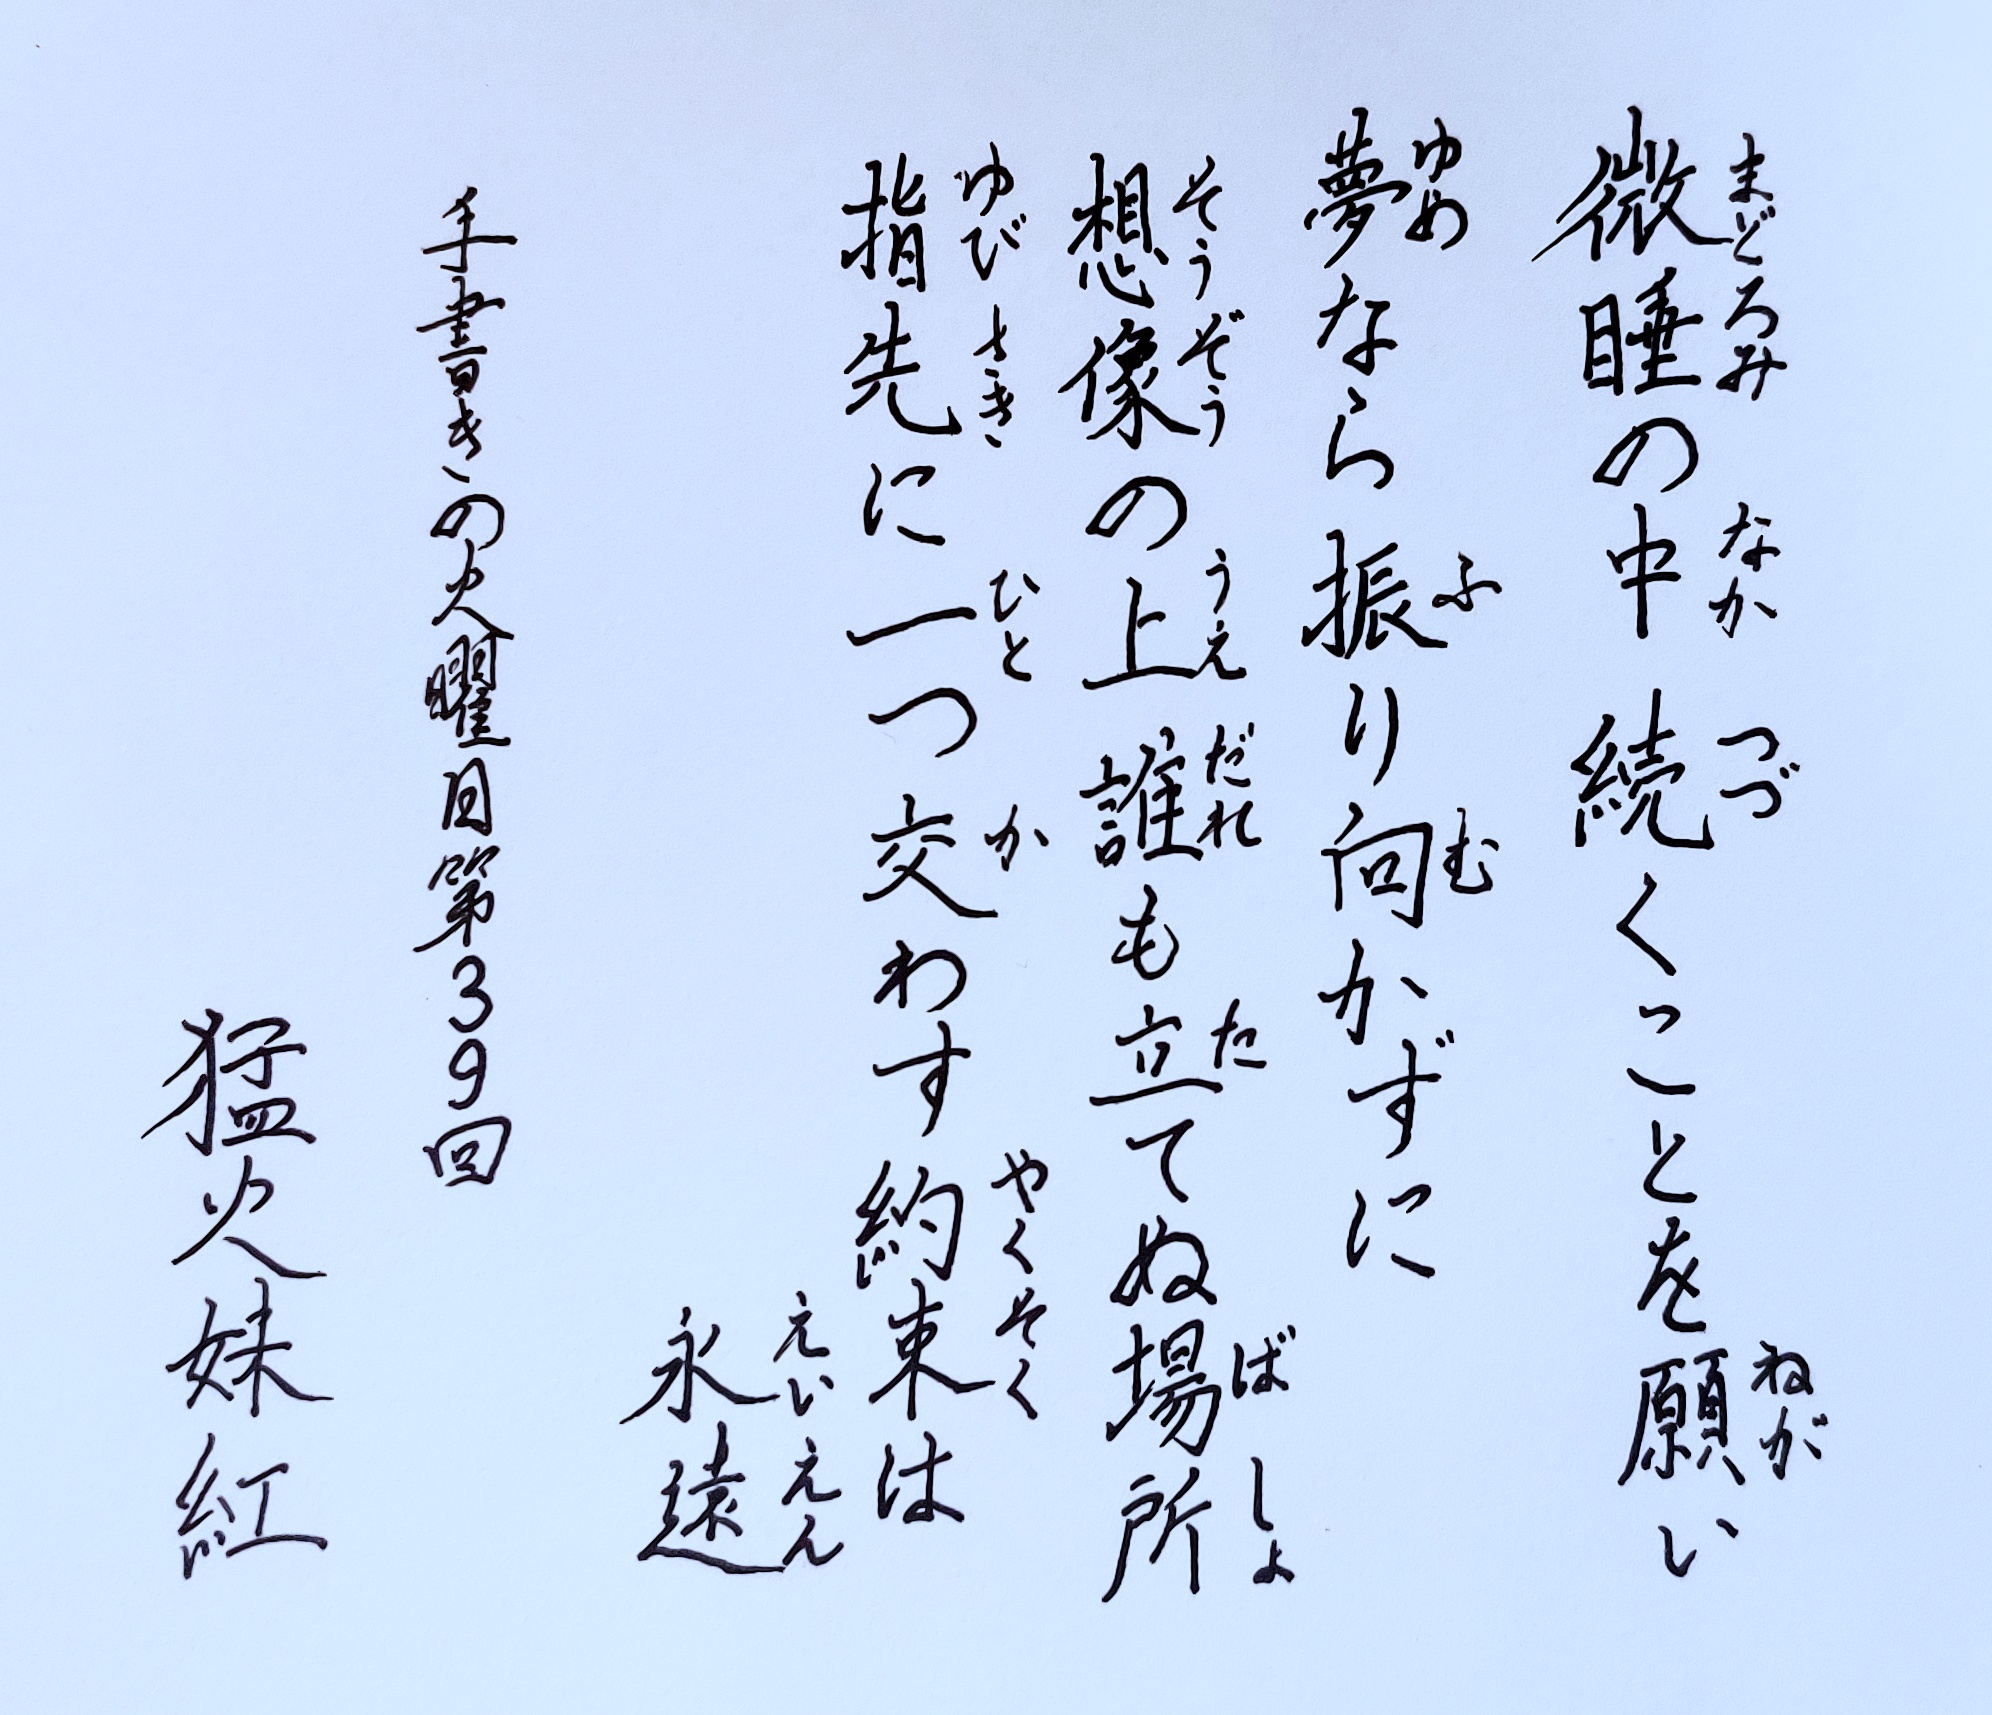 微睡の中 続くことを願い
まどろみ なか つづ ねが
夢なら振り向かずに
ゆめ ふ む
想像の上 誰も立てぬ場所
そうぞう うえ だれ た ばしょ
指先に一つ交わす約束は
ゆびさき ひと か やくそく
永遠
えいえん
手書きの火曜日第39回
猛火妹紅